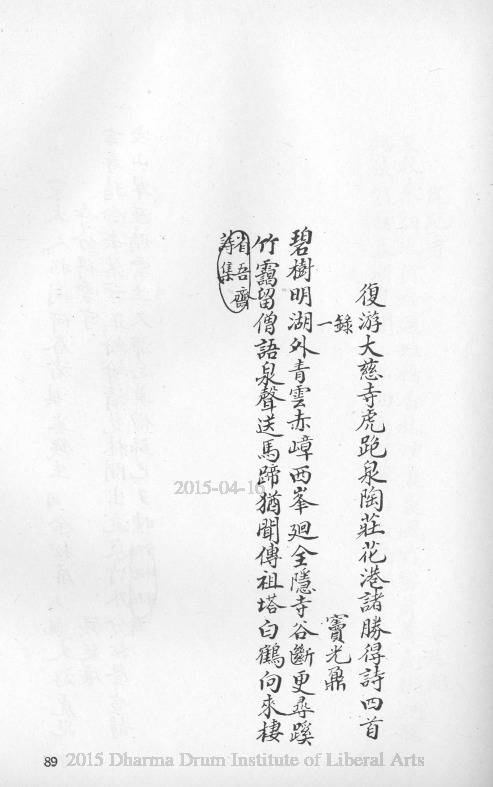 復游大慈寺虎跑泉陶莊花港諸勝得詩四首
錄一
竇光鼐
碧樹明湖外青雲赤嶂西峯廻全隱寺谷斷更尋蹊
竹靄留僧語泉聲送馬蹄猶聞傳祖塔白鶴向來棲
省吾齋
詩集
2015-04-16
89 2015 Dharma Drum Institute of Liberal Arts